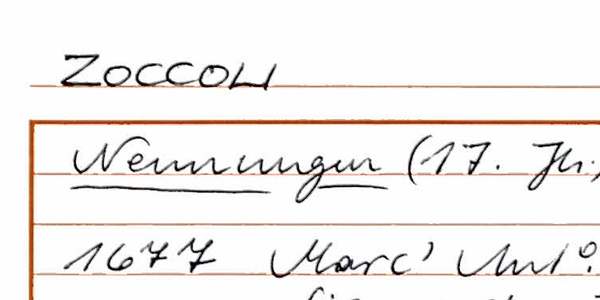 ZOCCOLI
Nennungen (17. Jh.)
1677 Marc' Ant.º